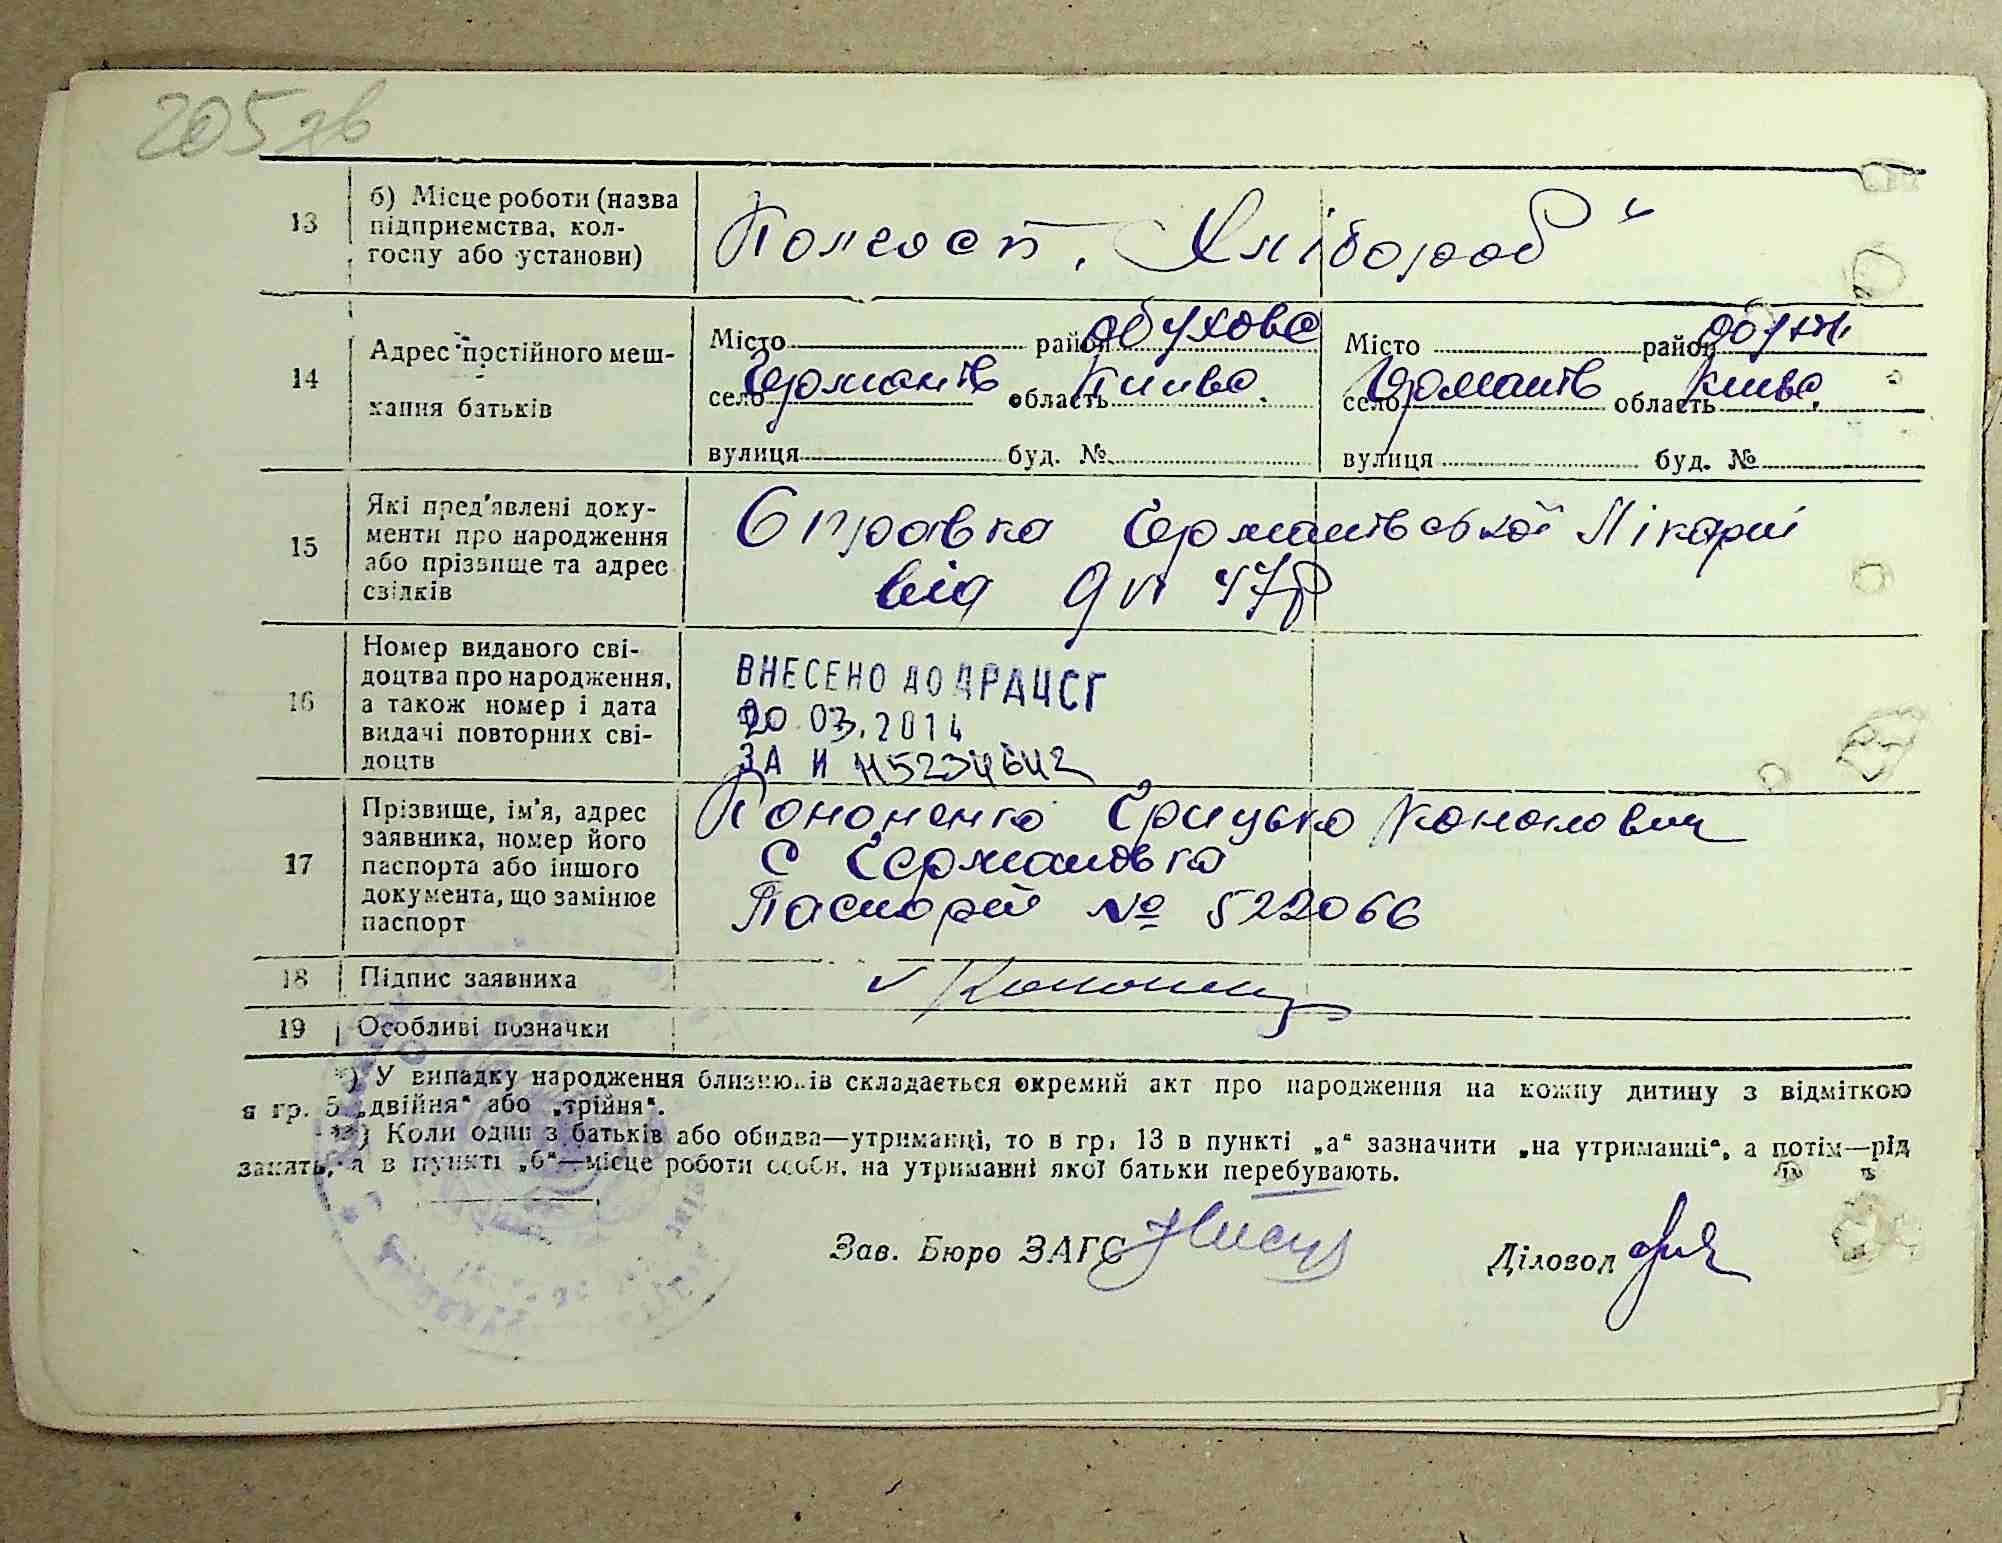 205 зв
13 б) Місце роботи (назва
підприємства, кол-
госпу або установи)
Колгосп „Хлібороб"
14 Адрес постійного меш-
кання батьків
Місто район Обухово Місто район Обух.
село Германів область Київс. село Германів область Київс.
вулиця буд. № вулиця буд. №
15 Які пред'явлені доку-
менти про народження
або прізвище та адрес
свідків
Справка Германівської Лікарні
від 9 47р
16 Номер виданого сві-
доцтва про народження,
а також номер і дата
видачі повторних сві-
доцтв
ВНЕСЕНО ДО ДРАЦСГ
20.03.2014
ЗА N
17 Прізвище, ім'я, адрес
заявника, номер його
паспорта або іншого
документа, що замінює
паспорт
Кононенко Грицько Кононович
с Германовка
Паспорт № 522066
18 Підпис заявника
19 Особливі позначки
*) У випадку народження близнюків складається окремий акт про народження на кожну дитину з відміткою
в гр. 5 „двійня" або „трійня".
**) Коли один з батьків або обидва—утриманці, то в гр. 13 в пункті „а" зазначити „на утриманні", а потім—рід
занять, а в пункті „б"—місце роботи особи, на утриманні якої батьки перебувають.
Зав. Бюро ЗАГС Діловод